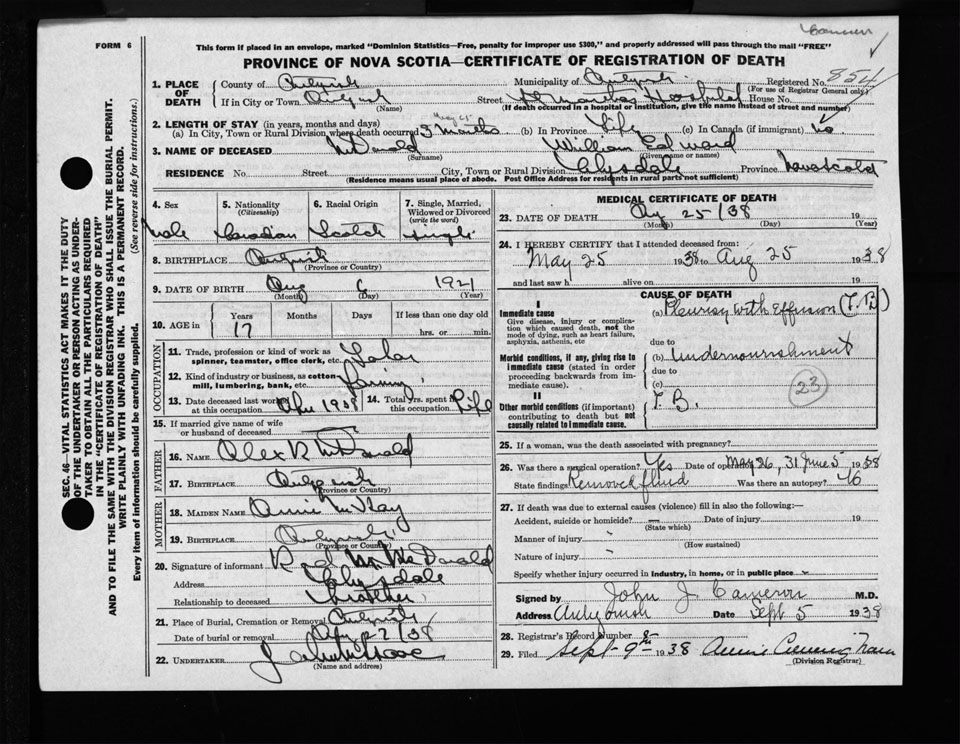 FORM 6
This form if placed in an envelope, marked "Dominion Statistics—Free, penalty for improper use $300," and properly addressed will pass through the mail "FREE"
PROVINCE OF NOVA SCOTIA—CERTIFICATE OF REGISTRATION OF DEATH
SEC. 46—VITAL STATISTICS ACT MAKES IT THE DUTY
OF THE UNDERTAKER OR PERSON ACTING AS UNDER-
TAKER TO OBTAIN ALL THE PARTICULARS REQUIRED
IN THE "CERTIFICATE OF REGISTRATION OF DEATH"
AND TO FILE THE SAME WITH THE DIVISION REGISTRAR WHO SHALL ISSUE THE BURIAL PERMIT.
WRITE PLAINLY WITH UNFADING INK. THIS IS A PERMANENT RECORD.
Every item of information should be carefully supplied. (See reverse side for instructions.)
1. PLACE OF DEATH
County of Antigonish Municipality of Antigonish Registered No. 854
(For use of Registrar General only)
If in City or Town Street St Marthas Hospital House No.
(Name) (If death occurred in a hospital or institution, give the name instead of street and number)
2. LENGTH OF STAY (in years, months and days) May 25
(a) In City, Town or Rural Division where death occurred 3 months (b) In Province Life (c) In Canada (if immigrant) no
3. NAME OF DECEASED McDonald William Edward
(Surname) (Given name or names)
RESIDENCE No. Street City, Town or Rural Division Clydesdale Province Nova Scotia
(Residence means usual place of abode. Post Office Address for residents in rural parts not sufficient)
4. Sex 5. Nationality (Citizenship) 6. Racial Origin 7. Single, Married, Widowed or Divorced (write the word)
Male Canadian Scotch Single
8. BIRTHPLACE Antigonish
(Province or Country)
9. DATE OF BIRTH Aug 6 1921
(Month) (Day) (Year)
10. AGE in Years Months Days If less than one day old
17 hrs. or min.
OCCUPATION
11. Trade, profession or kind of work as spinner, teamster, office clerk, etc. Labor
12. Kind of industry or business, as cotton mill, lumbering, bank, etc. Farming
13. Date deceased last worked at this occupation 14. Total yrs. spent in this occupation Life
15. If married give name of wife or husband of deceased
FATHER
16. NAME Alex R McDonald
17. BIRTHPLACE Antigonish
(Province or Country)
MOTHER
18. MAIDEN NAME Annie McKay
19. BIRTHPLACE Antigonish
(Province or Country)
20. Signature of informant McDonald
Address Clydesdale
Relationship to deceased brother
21. Place of Burial, Cremation or Removal Antigonish
Date of burial or removal
22. UNDERTAKER
(Name and address)
MEDICAL CERTIFICATE OF DEATH
23. DATE OF DEATH Aug 25/38 19
(Month) (Day) (Year)
24. I HEREBY CERTIFY that I attended deceased from:
May 25 1938 to Aug 25 1938
and last saw h alive on 19
CAUSE OF DEATH
I
Immediate cause
Give disease, injury or complica-
tion which caused death, not the
mode of dying, such as heart failure,
asphyxia, asthenia, etc
(a) Pleurisy with Effusion (T.B)
due to
Morbid conditions, if any, giving rise to
immediate cause (stated in order
proceeding backwards from im-
mediate cause).
(b) Undernourishment
due to
(c)
23
II
Other morbid conditions (if important)
contributing to death but not
causally related to immediate cause.
T. B.
25. If a woman, was the death associated with pregnancy?
26. Was there a surgical operation? Yes Date of operation May 26, 31 June 5 1938
State findings Removed fluid Was there an autopsy? No
27. If death was due to external causes (violence) fill in also the following:—
Accident, suicide or homicide? — Date of injury 19
(State which)
Manner of injury
(How sustained)
Nature of injury
Specify whether injury occurred in industry, in home, or in public place
Signed by John J. Cameron M.D.
Address Antigonish Date Sept 5 1938
28. Registrar's Record Number 8
29. Filed Sept 9th 1938 Annie
(Division Registrar)